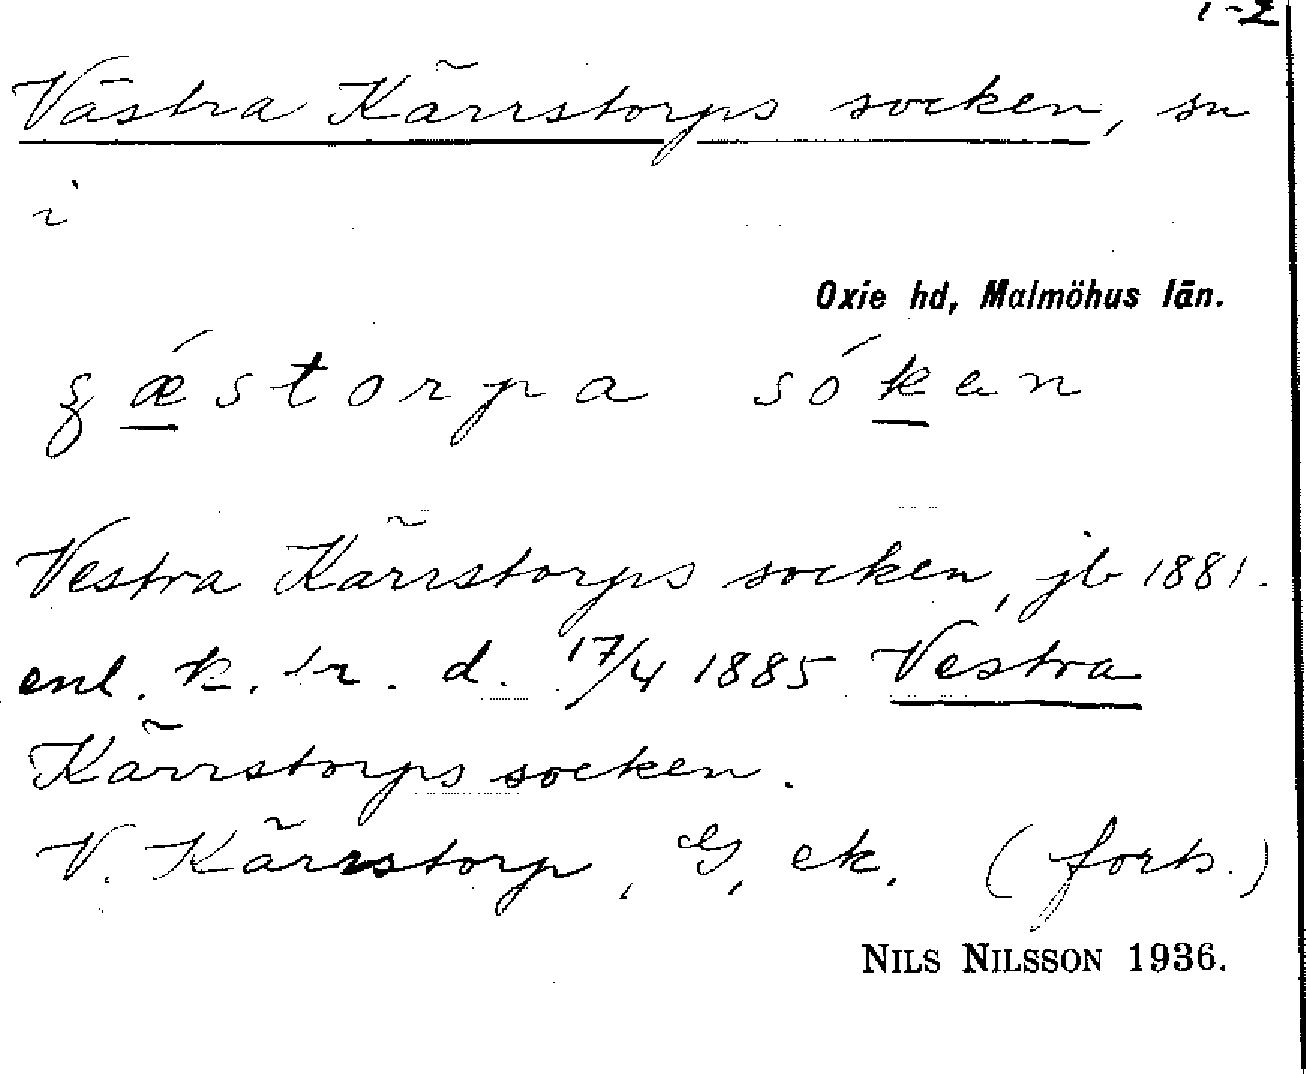 1-2
Västra Kärrstorps socken, sn
i
Oxie hd, Malmöhus län.
ɕǽstorpa sóken
Vestra Kärrstorps socken, jb 1881.
enl. k. br. d. 17/4 1885 Vestra
Kärrstorps socken.
V. Kärrstorp, G, ek. (forts.)
NILS NILSSON 1936.